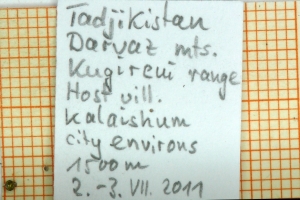 Tadjikistan
Darvaz mts.
Kugireui range
Host vill.
Kalaishium
city environs
1500 m
2.-3. VII. 2011